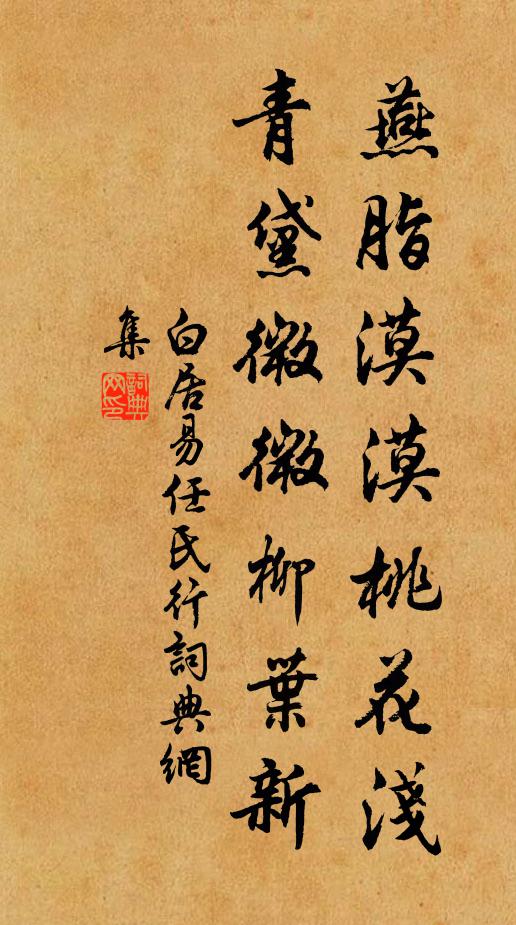 燕脂漠漠桃花淺
青黛微微柳葉新
白居易任氏行詞典網
集
詞典網印